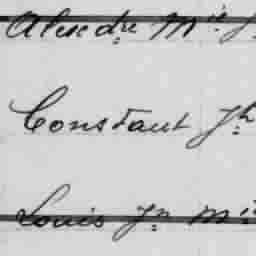 Alexdre Mie J
Constant Jh
Louis Jn Mie